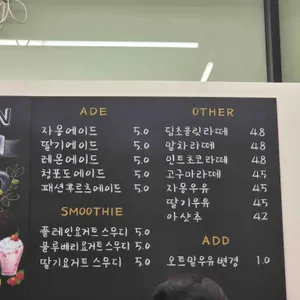 ADE
자몽에이드 5.0
딸기에이드 5.0
레몬에이드 5.0
청포도에이드 5.0
패션후르츠에이드 5.0
SMOOTHIE
플레인요거트스무디 5.0
블루베리요거트스무디 5.0
딸기요거트스무디 5.0
OTHER
딥초콜릿라떼 4.8
말차라떼 4.8
민트초코라떼 4.8
고구마라떼 4.5
자몽우유 4.5
딸기우유 4.5
아샷추 4.2
ADD
오트밀우유변경 1.0